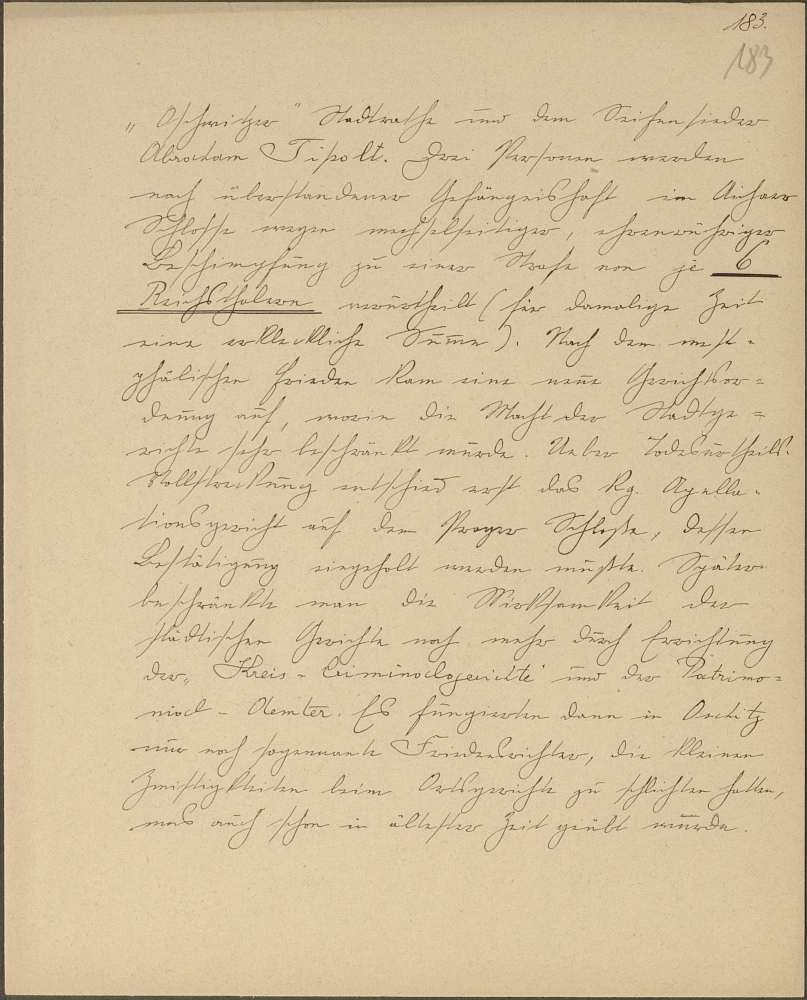 183.
183
„Oschwitzer" Stadtrathe und dem Seifensieder
Abraham Tipolt. Zwei Personen werden
nach überstandener Gefängnishaft im Aichaer
Schlosse wegen wechselseitiger, ehrenrühriger
Beschimpfung zu einer Strafe von je 6
Reichsthalern verurtheilt (für damalige Zeit
eine erkleckliche Summe). Nach dem west-
phälischen Frieden kam eine neue Gerichtsor=
dnung auf, worin die Macht der Stadtge=
richte sehr beschränkt wurde. Ueber Todesurtheils-
Vollstreckung entschied erst das kg. Apella-
tionsgericht auf dem Prager Schloße, dessen
Bestätigung eingeholt werden mußte. Später
beschränkte man die Wirksamkeit der
städtischen Gerichte noch mehr durch Errichtung
der „Kreis-Criminalgerichte" und der Patrimo=
nial-Aemter. Es fungierten dann in
nur noch sogenannte Friedensrichter, die kleinen
Zwistigkeiten beim Ortsgerichte zu schlichten hatten,
was auch schon in ältester Zeit geübt wurde.